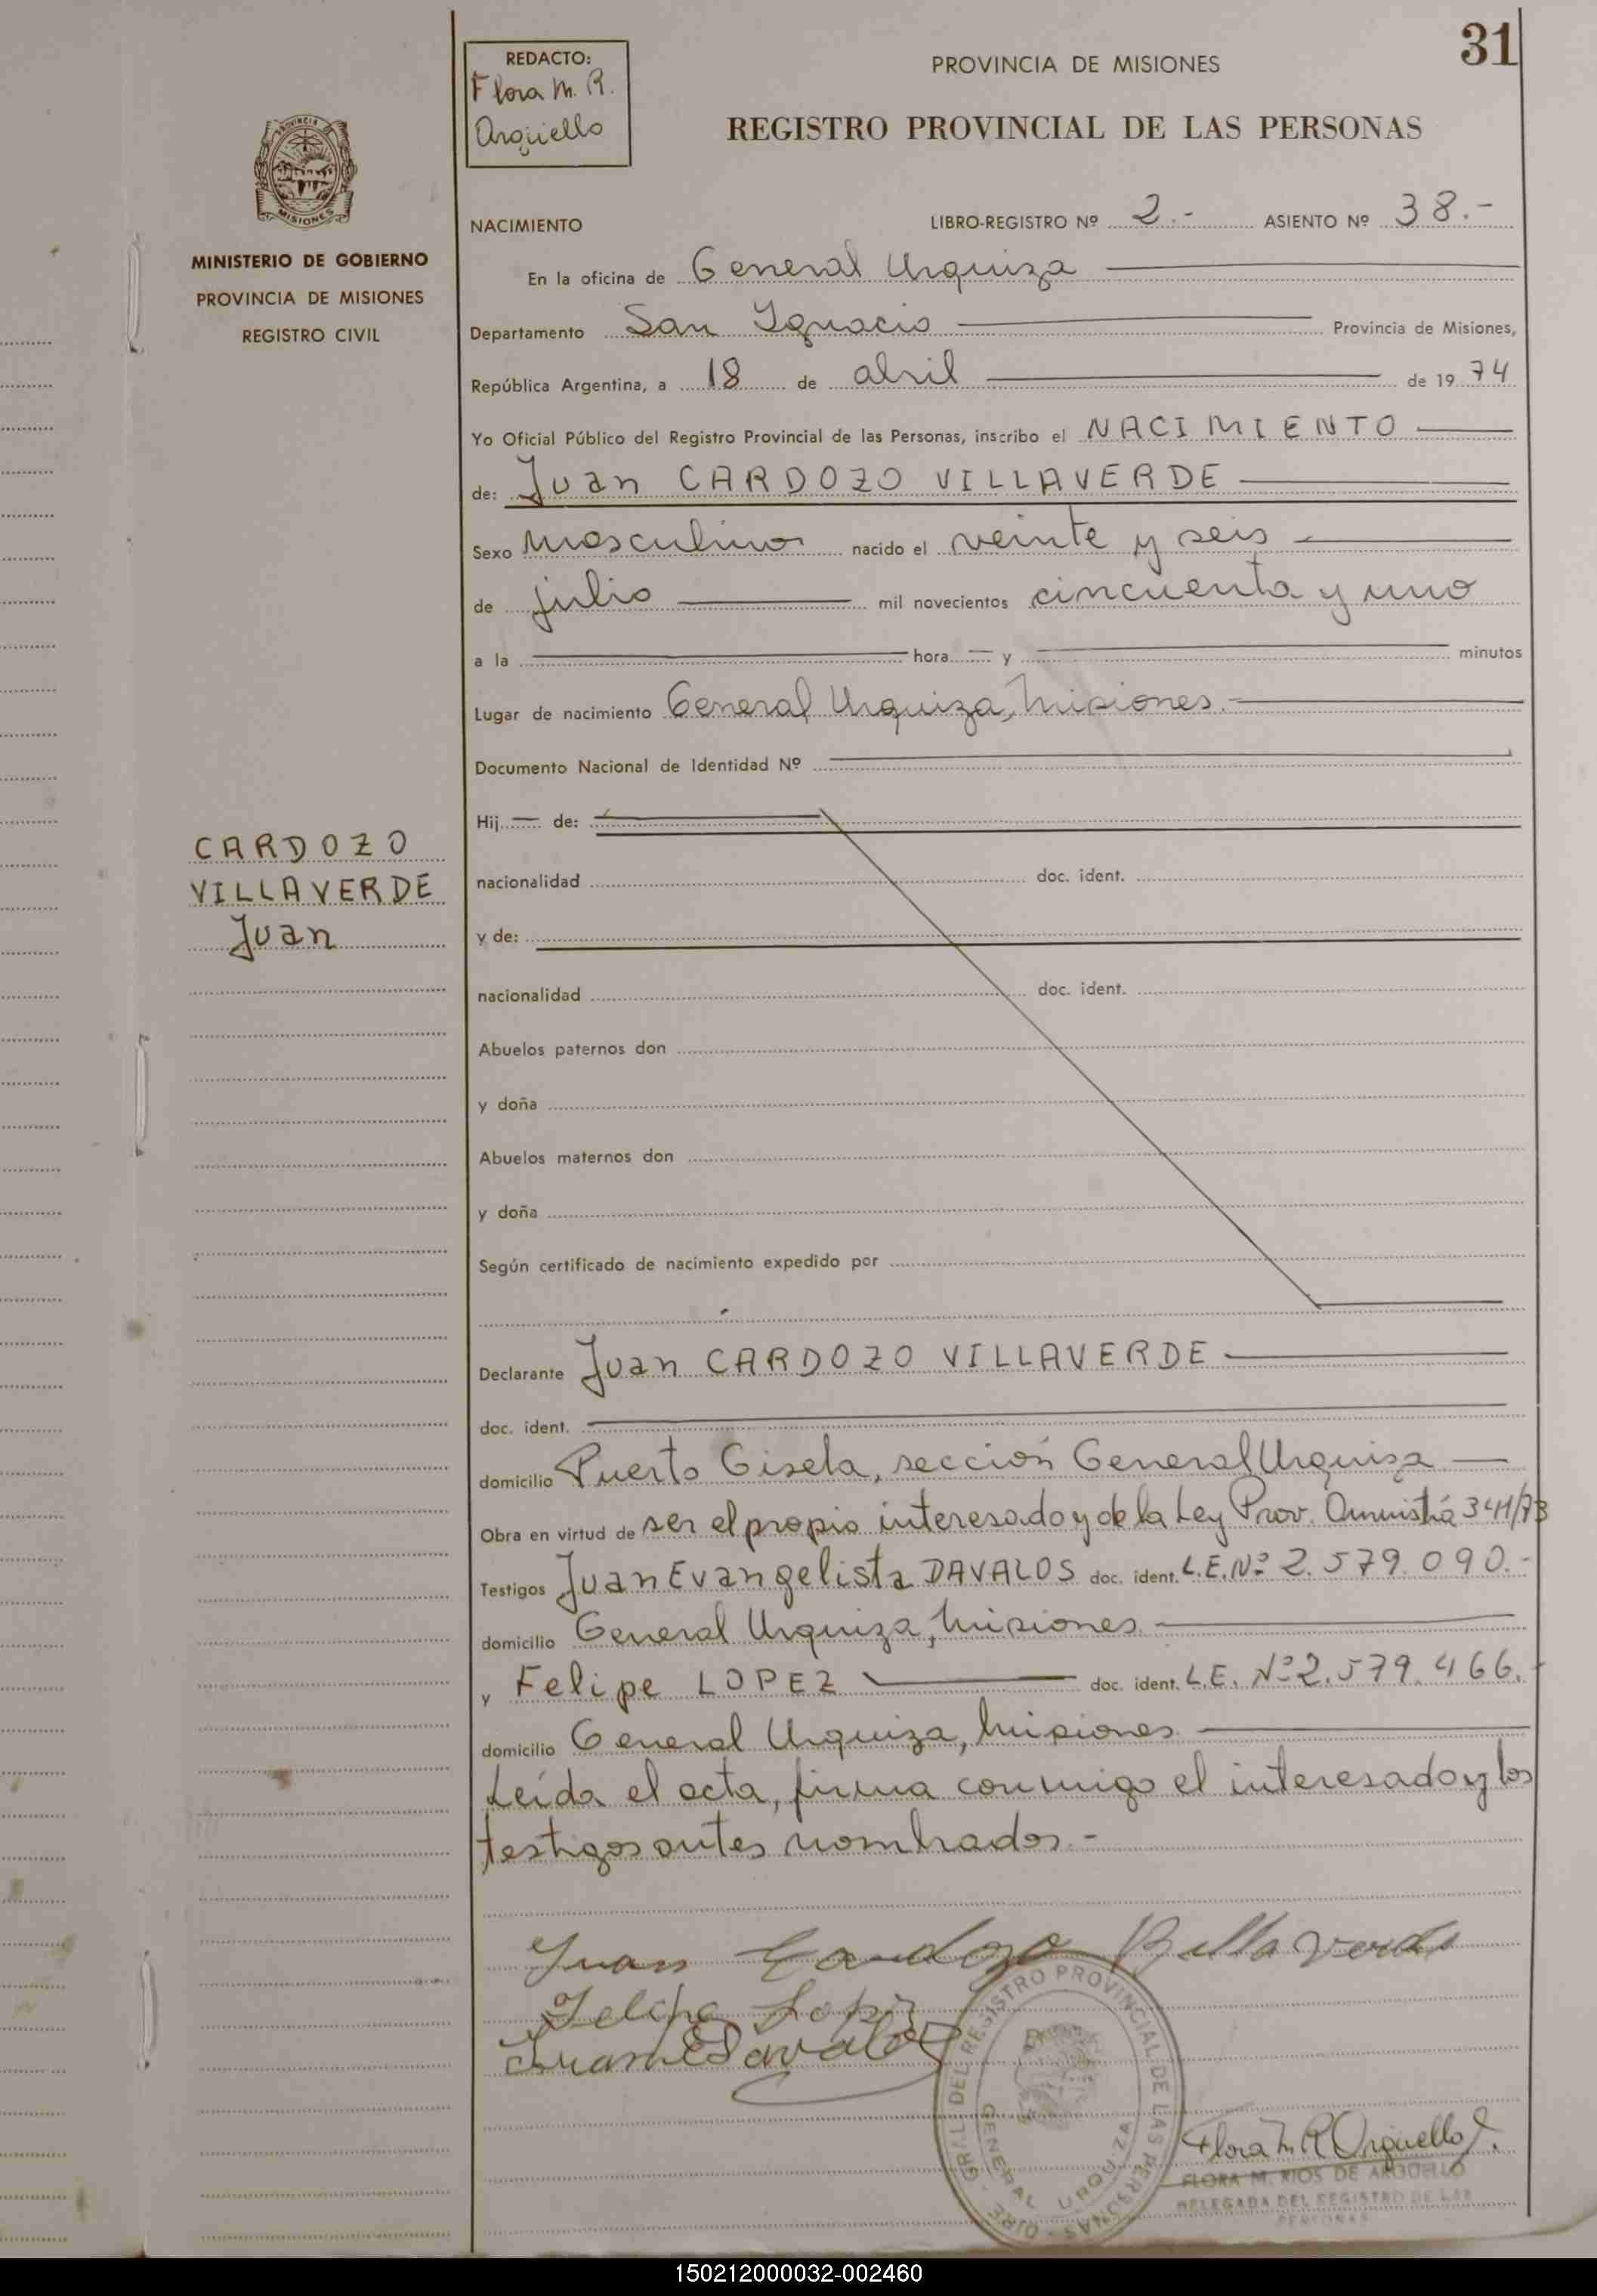 31
REDACTO:
Flora M. R.
Argüello
PROVINCIA DE MISIONES
REGISTRO PROVINCIAL DE LAS PERSONAS
PROVINCIA
MISIONES
MINISTERIO DE GOBIERNO
PROVINCIA DE MISIONES
REGISTRO CIVIL
NACIMIENTO LIBRO-REGISTRO Nº 2.- ASIENTO Nº 38.-
En la oficina de General Urquiza
Departamento San Ignacio Provincia de Misiones,
República Argentina, a 18 de abril de 19 74
Yo Oficial Público del Registro Provincial de las Personas, inscribo el NACIMIENTO
de: Juan CARDOZO VILLAVERDE
Sexo masculino nacido el veinte y seis
de julio mil novecientos cincuenta y uno
a la hora y minutos
Lugar de nacimiento General Urquiza, Misiones.-
Documento Nacional de Identidad Nº
Hij de:
CARDOZO
VILLAVERDE
Juan
nacionalidad doc. ident.
y de:
nacionalidad doc. ident.
Abuelos paternos don
y doña
Abuelos maternos don
y doña
Según certificado de nacimiento expedido por
Declarante Juan CARDOZO VILLAVERDE
doc. ident.
domicilio Puerto Gisela, sección General Urquiza
Obra en virtud de ser el propio interesado y de la Ley Prov. 341/73
Testigos Juan Evangelista DAVALOS doc. ident. L.E. Nº 2.579.090.-
domicilio General Urquiza, Misiones
y Felipe LOPEZ doc. ident. L.E. Nº 2.579.466.-
domicilio General Urquiza, Misiones
Leída el acta, firma conmigo el interesado y los
testigos antes nombrados.-
Juan Cardozo Billaverde
Felipe Lopez
Juan E Davalos
DIRE. GRAL. DEL REGISTRO PROVINCIAL DE LAS PERSONAS
GENERAL URQUIZA
Flora M R Arguello
FLORA M. RIOS DE ARGÜELLO
DELEGADA DEL REGISTRO DE LAS
PERSONAS
150212000032-002460